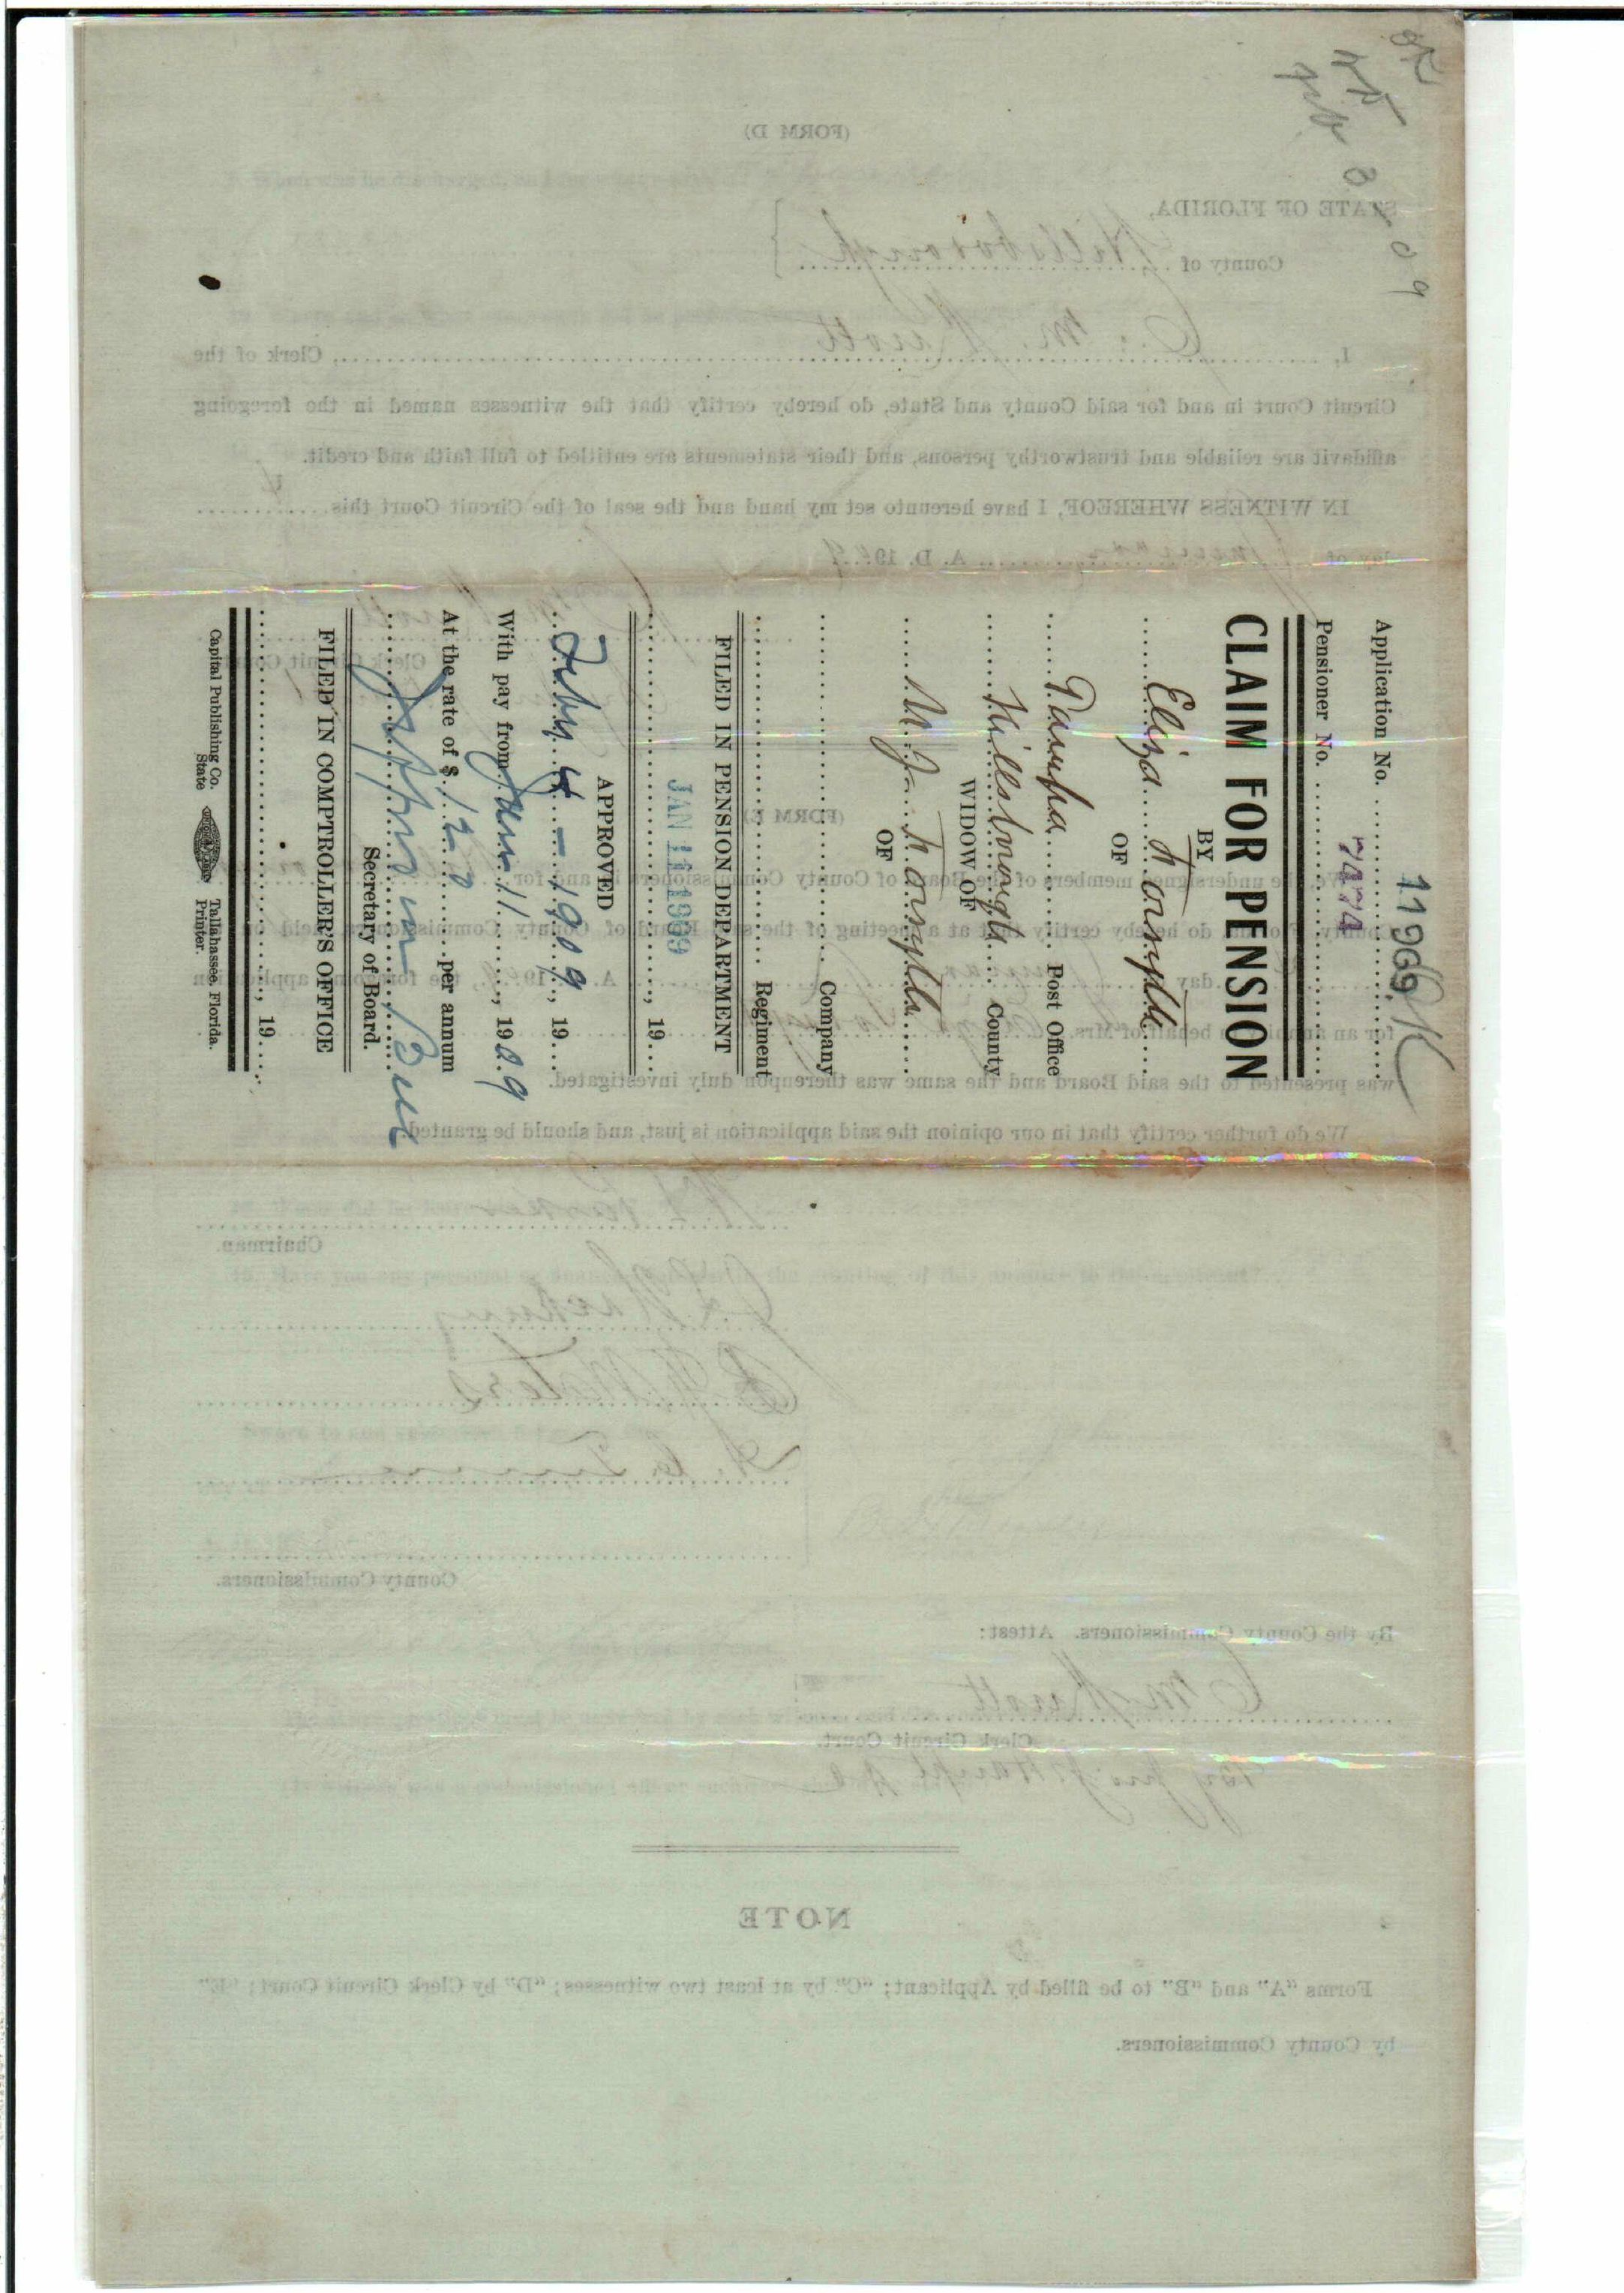 Application No. 11969
Pensioner No. 7474
CLAIM FOR PENSION
BY
Eliza Forsythe
OF
Tampa Post Office
Hillsborough County
WIDOW OF
W. J. Forsythe
OF
Company
Regiment
FILED IN PENSION DEPARTMENT
JAN 11 1909
, 19
APPROVED
Feby 4 - 1909, 19
With pay from Jan 11, 1909
At the rate of $ 120 per annum
Jefferson Bell
Secretary of Board.
FILED IN COMPTROLLER'S OFFICE
, 19
Capital Publishing Co. Tallahassee, Florida.
State Printer.
(FORM D)
STATE OF FLORIDA,
County of Hillsborough
I, C. M. Knott, Clerk of the
Circuit Court in and for said County and State, do hereby certify that the witnesses named in the foregoing
affidavit are reliable and trustworthy persons, and their statements are entitled to full faith and credit.
IN WITNESS WHEREOF, I have hereunto set my hand and the seal of the Circuit Court this 4
day of January A. D. 1909
Clerk Circuit Court
(FORM E)
We, the undersigned members of the Board of County Commissioners in and for
County, Florida, do hereby certify that at a meeting of the said Board of County Commissioners held on
day A. D. 1909, the foregoing application
for an behalf of Mrs.
was presented to the said Board and the same was thereupon duly investigated.
We do further certify that in our opinion the said application is just, and should be granted.
Chairman.
County Commissioners.
By the County Commissioners. Attest:
C M Knott
Clerk Circuit Court.
NOTE
Forms "A" and "B" to be filled by Applicant; "C" by at least two witnesses; "D" by Clerk Circuit Court; "E"
by County Commissioners.